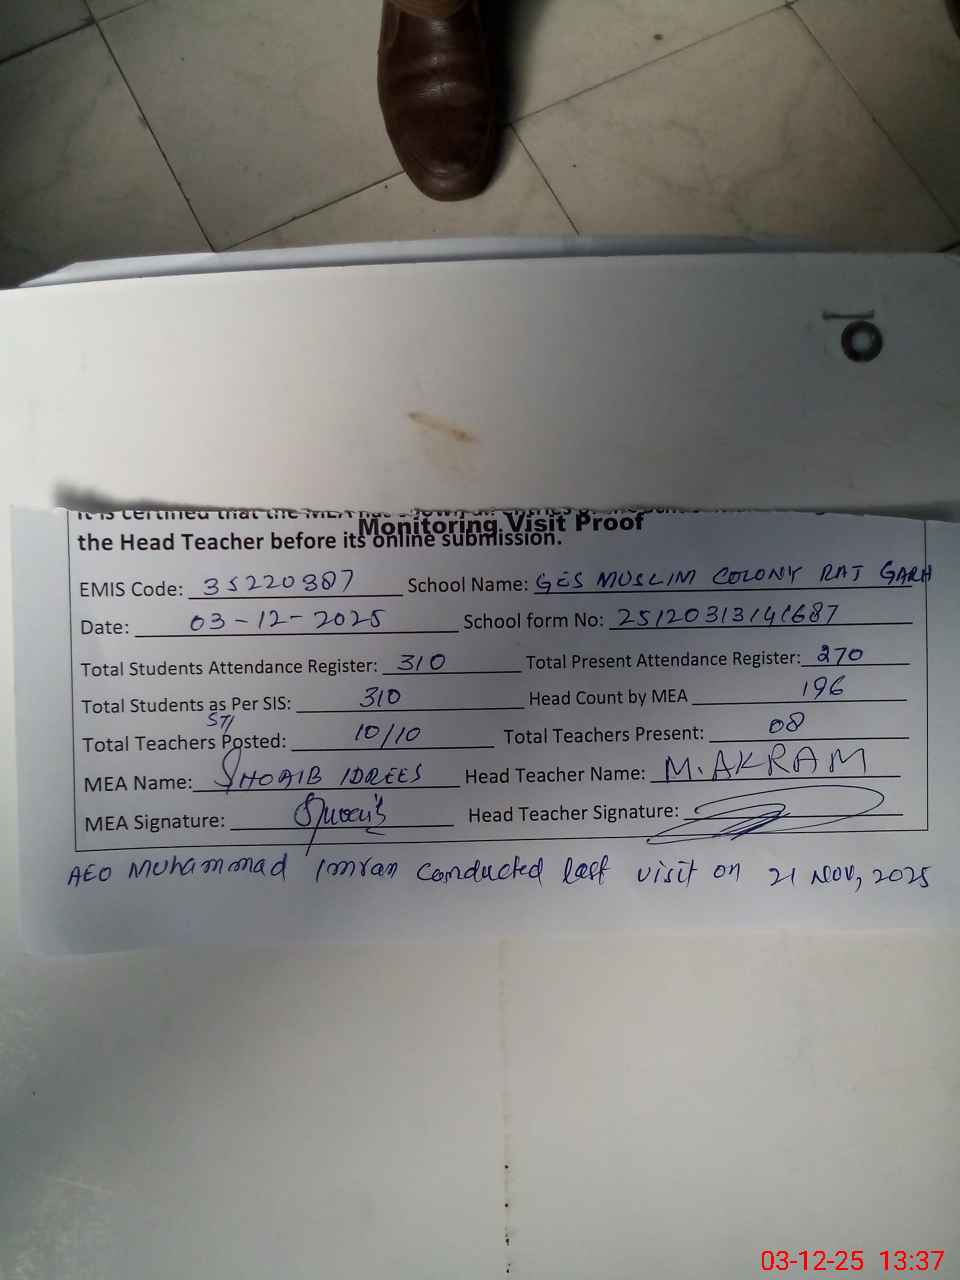 It is certified that the MEA has shown all entries
Monitoring Visit Proof
the Head Teacher before its online submission.
EMIS Code: 35220387 School Name: GES MUSLIM COLONY RAJ GARH
Date: 03-12-2025 School form No: 2512031314
Total Students Attendance Register: 310 Total Present Attendance Register: 270
Total Students as Per SIS: 310 Head Count by MEA 196
STI
Total Teachers Posted: 10/10 Total Teachers Present: 08
MEA Name: SHOAIB IDREES Head Teacher Name: M. AKRAM
MEA Signature: Head Teacher Signature:
AEO Muhammad Imran conducted last visit on 21 Nov, 2025
03-12-25 13:37